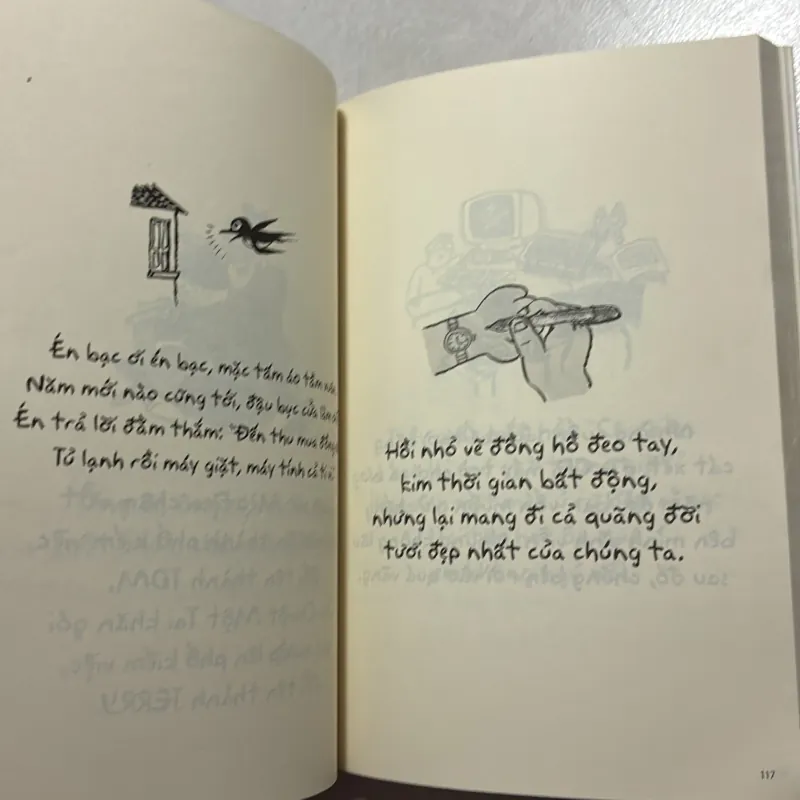 Én bạc ơi én bạc, mặc tấm áo
Năm mới nào cũng tới, đậu bục cửa
Én trả lời đằm thắm: "Đến thu mua
Tủ lạnh rồi máy giặt, máy tính cả ti vi
Hồi nhỏ vẽ đồng hồ đeo tay,
kim thời gian bất động,
nhưng lại mang đi cả quãng đời
tươi đẹp nhất của chúng ta.
117